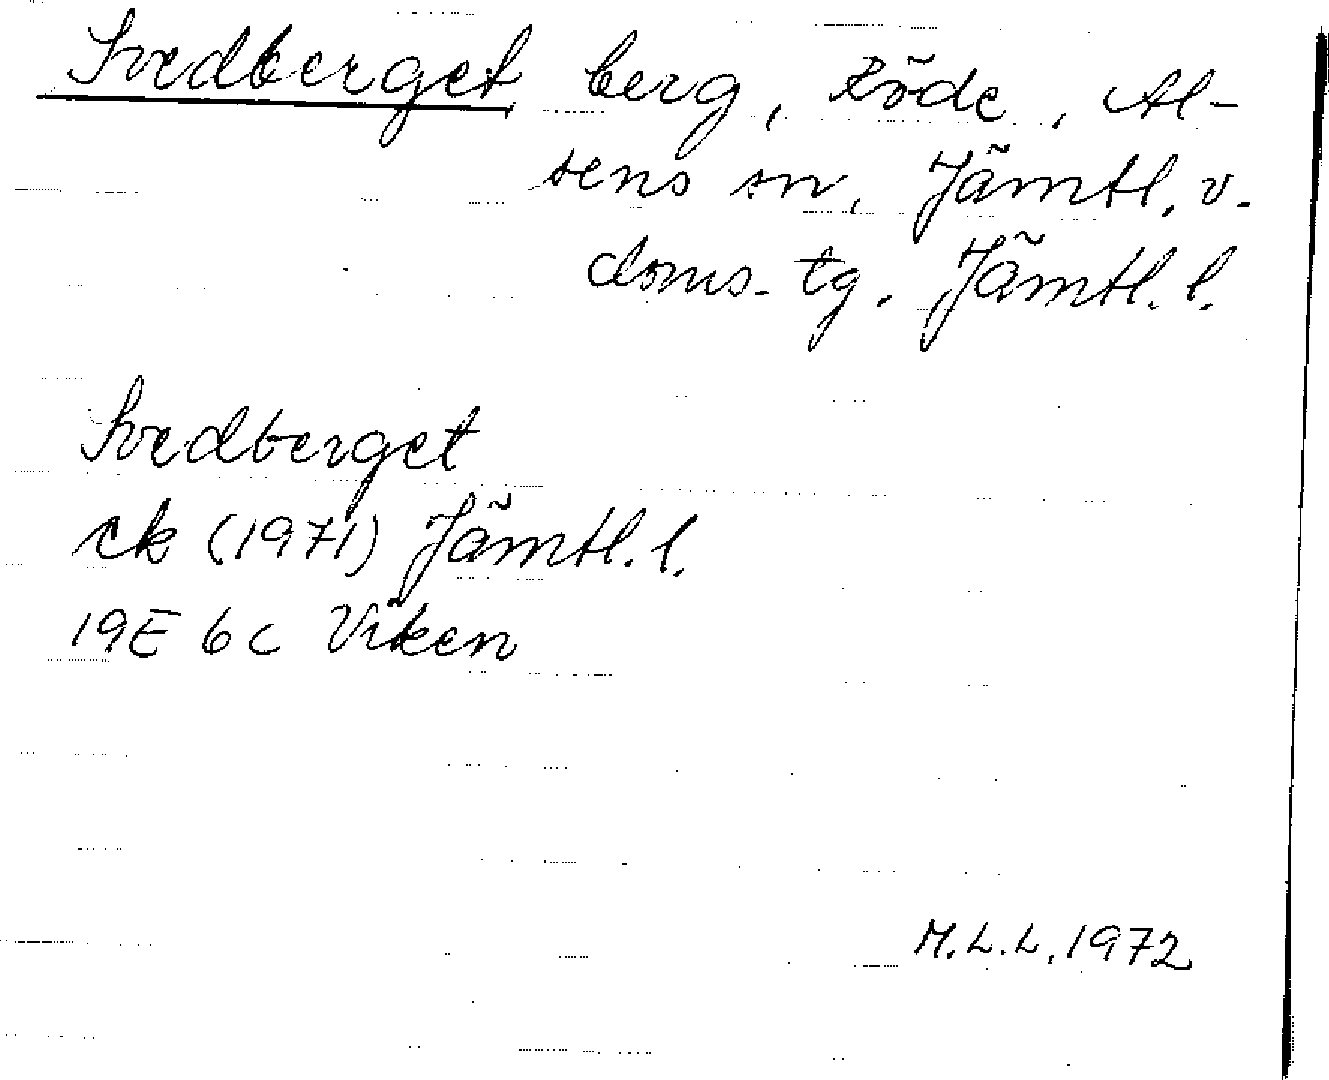 Svedberget berg, Röde, Al-
sens sn, Jämtl. v.
doms. tg. Jämtl. l.
Svedberget
ek (1971) Jämtl. l.
19E 6c Viken
M.L.L. 1972